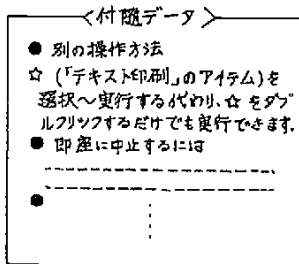 <付随データ>
● 別の操作方法
☆ (「テキスト印刷」のアイテム)を
選択〜実行する代わり、☆ をダブ
ルクリックするだけでも実行できます。
● 即座に中止するには
●